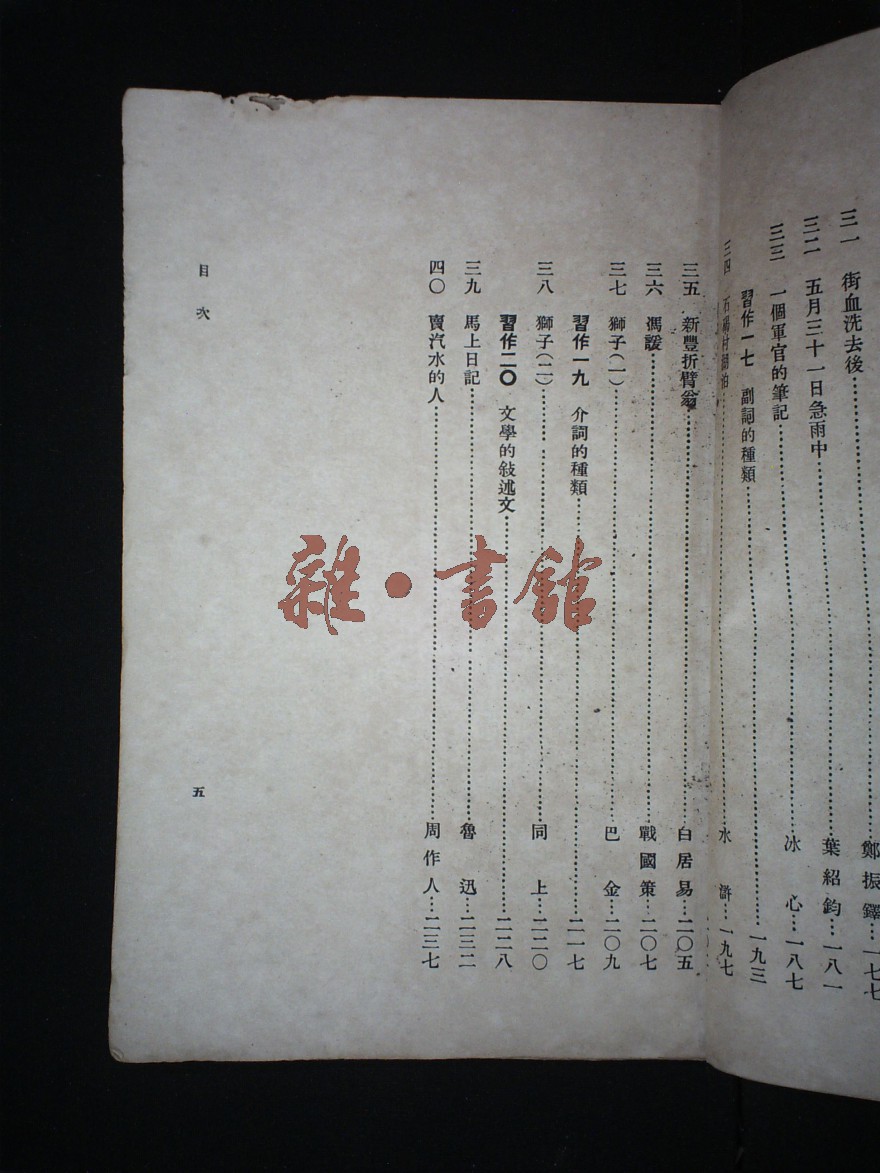 三一 街血洗去後……鄭振鐸…一七七
三二 五月三十一日急雨中……葉紹鈞…一八一
三三 一個軍官的筆記……冰心…一八七
習作一七 副詞的種類……一九三
三四 石碣村……水滸…一九七
三五 新豐折臂翁……白居易…二〇五
三六 馮諼……戰國策…二〇七
三七 獅子(一)……巴金…二〇九
習作一九 介詞的種類……二一七
三八 獅子(二)……同上…二二〇
習作二〇 文學的敍述文……二二八
三九 馬上日記……魯迅…二三二
四〇 賣汽水的人……周作人…二三七
目次
五
雜·書館